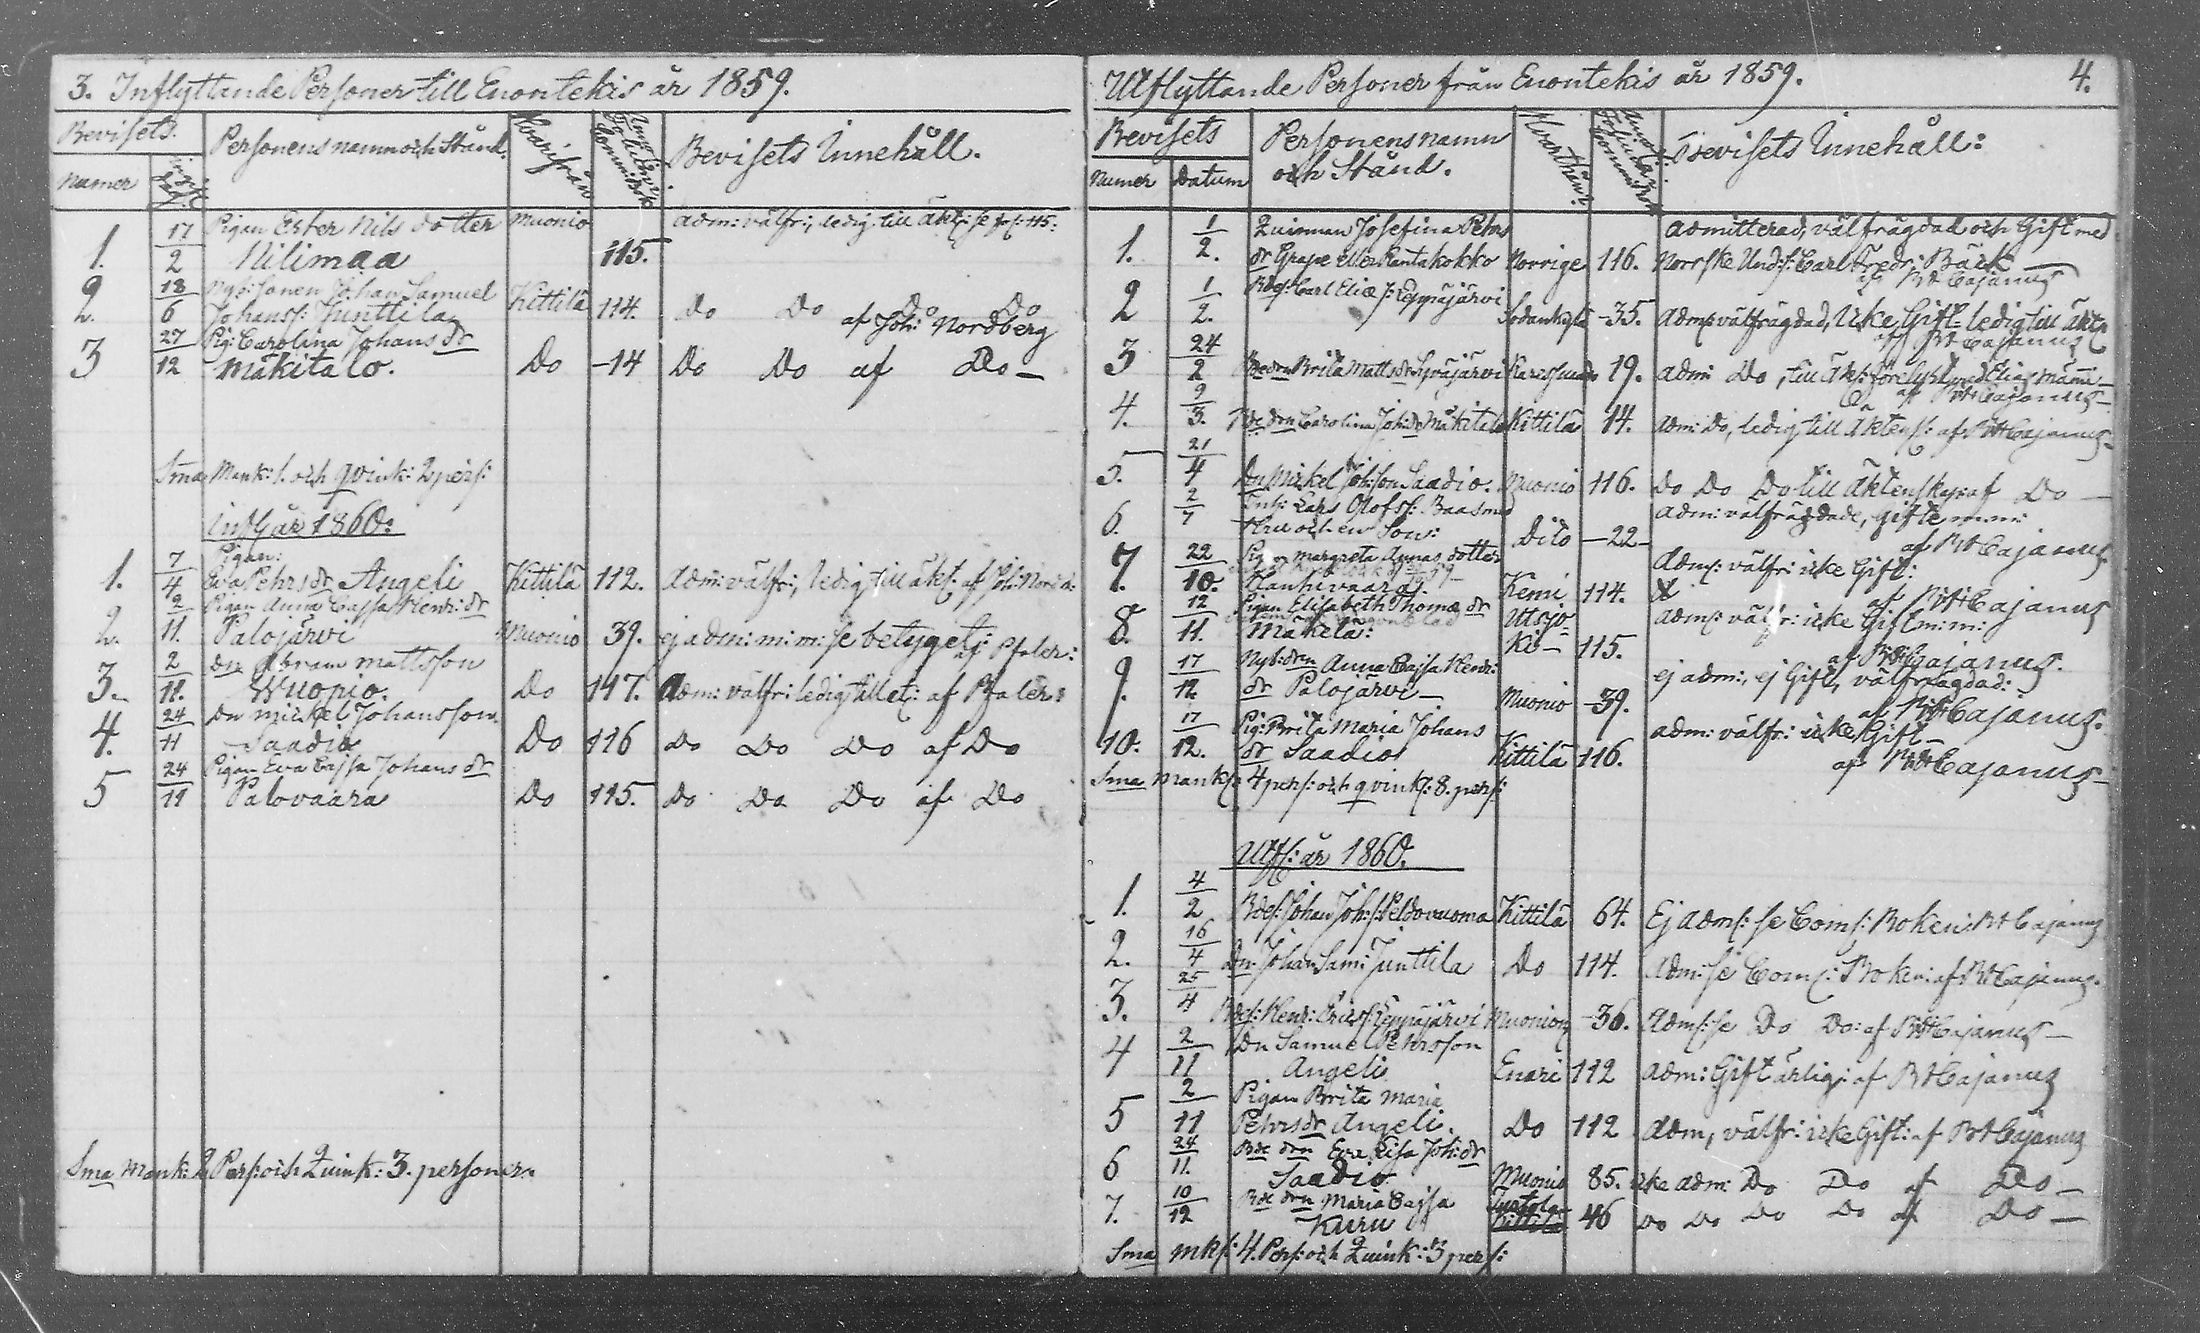 3. Inflyttande Personer till Enontekis år 1859.
Bevisets
Personens namn och Stånd.
Hvarifrån
Bevisets Innehåll.
Numer
1. 17/2 Pigan Ester Nils dotter Niiimaa Muonio 115. adm: välfr:, ledig till äkt: se fol: 115:
2. 18/6 Nyb: sonen Johan Samuel Johanss: Junttila Kittilä 114. Do Do Do Do
af Joh: Nordberg
3 27/12 Pig: Carolina Johans dr Mäkitalo. Do -14 Do Do af Do -
Sma Mank: 1. och qvink: 2 pers:
Infl: år 1860:
1. 7/4 Pigan: Eva Pehrs dr Angeli Kittilä 112. adm: välfr:, ledig till äkt: af Joh: Nord:
2. 2/11. Pigan Anna Cajsa Henr: dr Palojärvi Muonio 39. ej adm: m: m: se betyget: af Pfaler:
3. 2/11. Dn Abram Mattsson Wuopio. Do 117. adm: välfr: ledig till et: af Pfaler:
4. 24/11 Dn Mickel Johansson Saadio Do 116 Do Do Do af Do
5 24/11 Pigan Eva Cajsa Johans dr Palovaara Do 115. Do Do Do af Do
Sma Mank: 2 Pers: och Quink: 3. personer.
Utflyttande Personer från Enontekis år 1859. 4.
Bevisets
Personens namn
och Stånd.
Hvarthän
Bevisets Innehåll:
Numer Datum
1. 1/2. Quinnan Josefina Pehrs dr Grape eller Rantakokko Norrige 116. admitterad, välfrägdad och Gift med Norrske Und: s: Carl Fredr: Bäck -
af RHCajanus
2 1/2. Bdes: Carl Elias s: Leppäjärvi Sodankylä -35. Adm: välfrägdad, icke Gift - ledig till äkt:
af RHCajanus
3 24/2 Bdedrn Brita Matts dr Syväjärvi Karessuando 19. adm: Do, till äkt: förelyst med Elias Mämi -
af RHCajanus -
4. 9/3. Bde drn Carolina Joh: dr Mäkitalo Kittilä 14. adm: Do, ledig till äktensk: af RHCajanus -
5. 21/4 Dn Mickel Johsson Saadio. Muonio 116. Do Do Do till äktenskap af Do -
6. 2/7 Inh: Lars Olofss: Baas med Hru och en Son: Dito -22- adm: välfrägdade, gifte m:m:
af RHCajanus
7. 22/10. Pigan Margreta Annas dotter Kemi 114. Adm: välfr: icke Gift:
af RHCajanus
8. 12/11. Pigan Elisabeth Thomæ dr Mäkelä: Utsjo-
ki - 115. adm: välfr: icke Gift m: m:
af RHCajanus.
9. 17/12. Nyb: drn Anna Cajsa Henr: dr Palojärvi - Muonio -39. ej adm:, ej Gift, välfrägdad:
af RHCajanus.
10. 17/12. Pig: Brita Maria Johans dr Saadio Kittilä 116. adm: välfr: icke Gift -
af RHCajanus -
Sma Manks: 4 pers: och qvinks: 8. pers:
Utfl: år 1860.
1. 4/2 Bdes: Johan Joh: s: Peldovuoma Kittilä 64. Ej adm: se Com: Boken: RHCajanus
2. 16/4 Dn Johan Sam: Junttila Do 114. Adm: se Com: Boken: af RHCajanus.
3. 25/4 Bdes: Henr: Ericss: Leppäjärvi Muonion -36. Adm: se Do Do: af RHCajanus -
4 2/11 Dn Samuel Pehrsson Angeli Enari 112 Adm: Gift ärlig: af RHCajanus
5 2/11 Pigan Brita Maria Pehrsdr Angeli. Do 112 Adm, välfr: icke Gift: af RHCajanus
6 24/11. Bde drn Eva Lisa Joh: dr Saadio Muonio 85. icke adm: Do Do af Do -
7. 10/12 Bde drn Maria Cajsa Kuru Kittilä 46 Do Do Do Do af Do -
Sma mks: 4. Pers: och Quink: 3 pers: